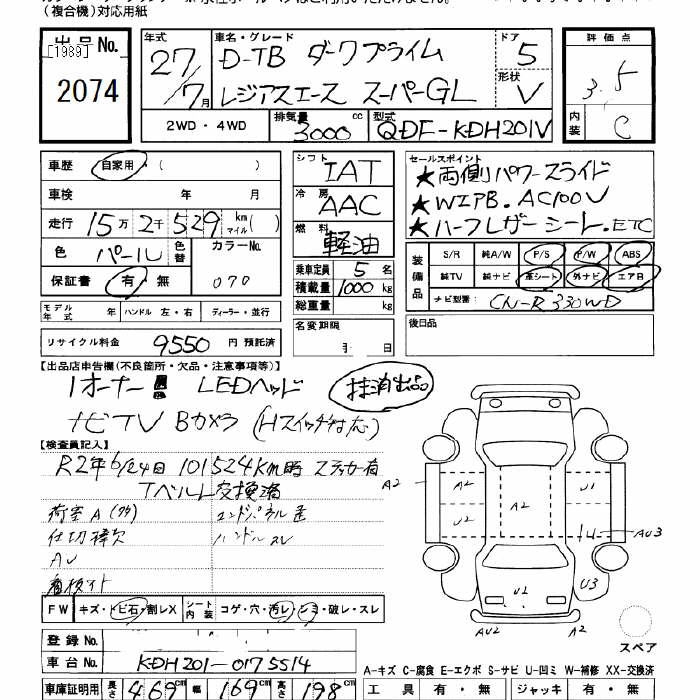 (複合機)対応用紙
出品No.
[1989]
2074
年式 27/7月
車名・グレード D-TB ダークプライム
レジアスエース スーパーGL
ドア 5
形状 V
評価点 3.5
内装 C
2WD・4WD
排気量 3000 cc
型式 QDF-KDH201V
車歴 自家用・( )
車検 年 月
走行 15万2千529 km マイル( )
色 パール 色替 カラーNo. 070
保証書 有・無
シフト IAT
冷房 AAC
燃料 軽油
乗車定員 5 名
積載量 1000 kg
総重量 kg
セールスポイント
★両側パワースライド
★W エアB. AC100V
★ハーフレザーシート.ETC
装備品
S/R 純A/W P/S P/W ABS
純TV 純ナビ 革シート 外ナビ エアB
ナビ型番: CN-R330WD
モデル年式 年 ハンドル 左・右 ディーラー・並行
名変期限 月 日
後日品
リサイクル料金 9550 円 預託済
【出品店申告欄(不良箇所・欠品・注意事項等)】
1オーナー! LEDヘッド 抹消出品
ナビTV Bカメラ (Hスイッチ対応)
【検査員記入】
R2年6/24日 101524Km時 ステッカー有
Tベルト交換済
荷室A
エンドパネル歪
仕切棒欠
ハンドルスレ
AU
看板イト
FW キズ・トビ石・割レX シート内装 コゲ・穴・汚レ・シミ・破レ・スレ
A2
A2
A2
U2
U1
1U
AU3
U3
U2
AU2
A2
スペア
登録No.
車台No. KDH201-0175514
A-キズ C-腐食 E-エクボ S-サビ U-凹ミ W-補修 XX-交換済
車庫証明用 長さ 469 cm 幅 169 cm 高さ 198 cm
工具 有・無 ジャッキ 有・無